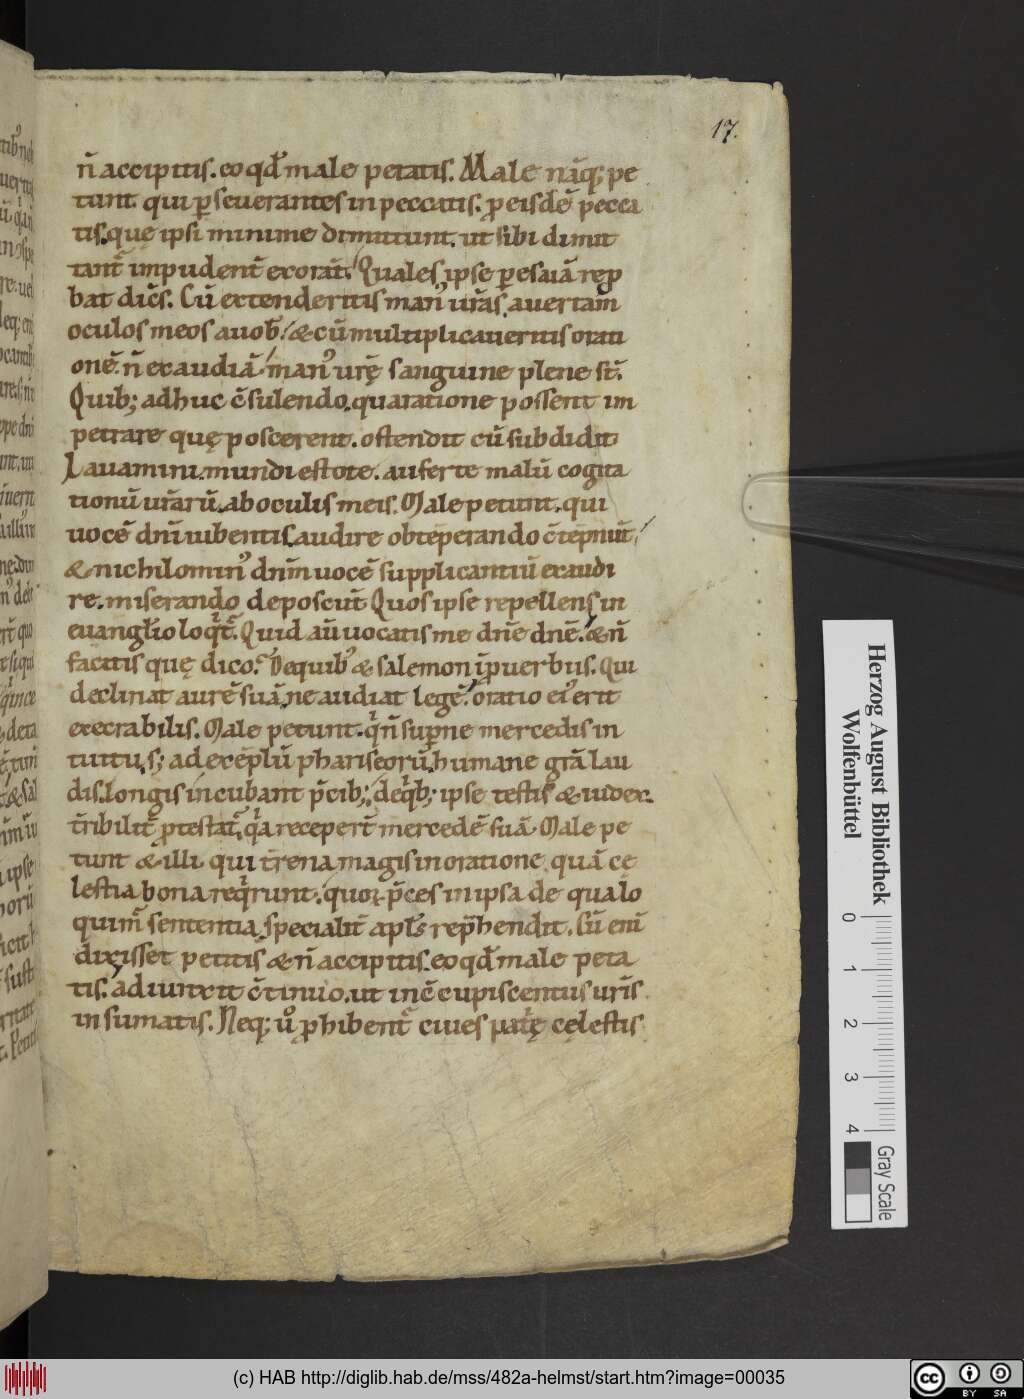 17.
n̄ accipitis. eo qđ male petatis. Male nāq; pe
tunt qui ꝑseuerantes in peccatis. ꝓ eisdē pecca
tis. quę ipsi minime dimittunt. ut sibi dimit
tant᷑ impudent᷑ exorāt. Quales ipse ꝑ esaiā rep̱
bat dic̄s. Cū extenderitis man᾽ ur̄as auertam
oculos meos a uob᾽. & cū multiplicaueritis orati
onē. n̄ exaudiā. man᾽ urę̄ sanguine plene st̄.
Quib; adhuc c̄sulendo. qua ratione possent im
petrare quę poscerent. ostendit cū subdidit
Lauamini. mundi estote. auferte malū cogita
tionū ur̄arū. ab oculis meis. Male petunt. qui
uocē dn̄i iubentis. audire obtēperando c̄tēpnūt.
& nichilomin᾽ dn̄m uocē supplicantiū exaudi
re. miserando deposcūt. Quos ipse repellens in
euangl̄io loqt᷑. Quid aū uocatis me dn̄e dn̄e. & n̄
facitis quę dico. De quib᾽ & salemon in ꝓuerbiis. Qui
declinat aurē suā, ne audiat legē. oratio ei᾽ erit
execrabilis. Male petunt. qi n̄ supn̄e mercedis in
tuitu. s; ad exēplū phariseorū. humane gr̄a lau
dis. longis incubant p̄cib;. de qib; ipse testis & iudex.
t̄ribilit᷑ ꝓtestat᷑. qa recepert̄ mercedē suā. Male pe
tunt & illi qui t̄rena magis in oratione. quā ce
lestia bona reqrunt. quoꝝ p̄ces in ipsa de qua lo
quim᷑ sententia. specialit̄ apl̄s rep̄hendit. Cū eni̅
dixisset petitis & n̄ accipitis. eo qđ male peta
tis. adiunxit c̄tinuo. ut in c̄cupiscentiis ur̄is
insumatis. Neq; u᾽ ꝓhibent᷑ ciues pat̄ę cęlestis
Herzog August Bibliothek
Wolfenbüttel
0 1 2 3 4
Gray Scale
(c) HAB http://diglib.hab.de/mss/482a-helmst/start.htm?image=00035
cc BY SA